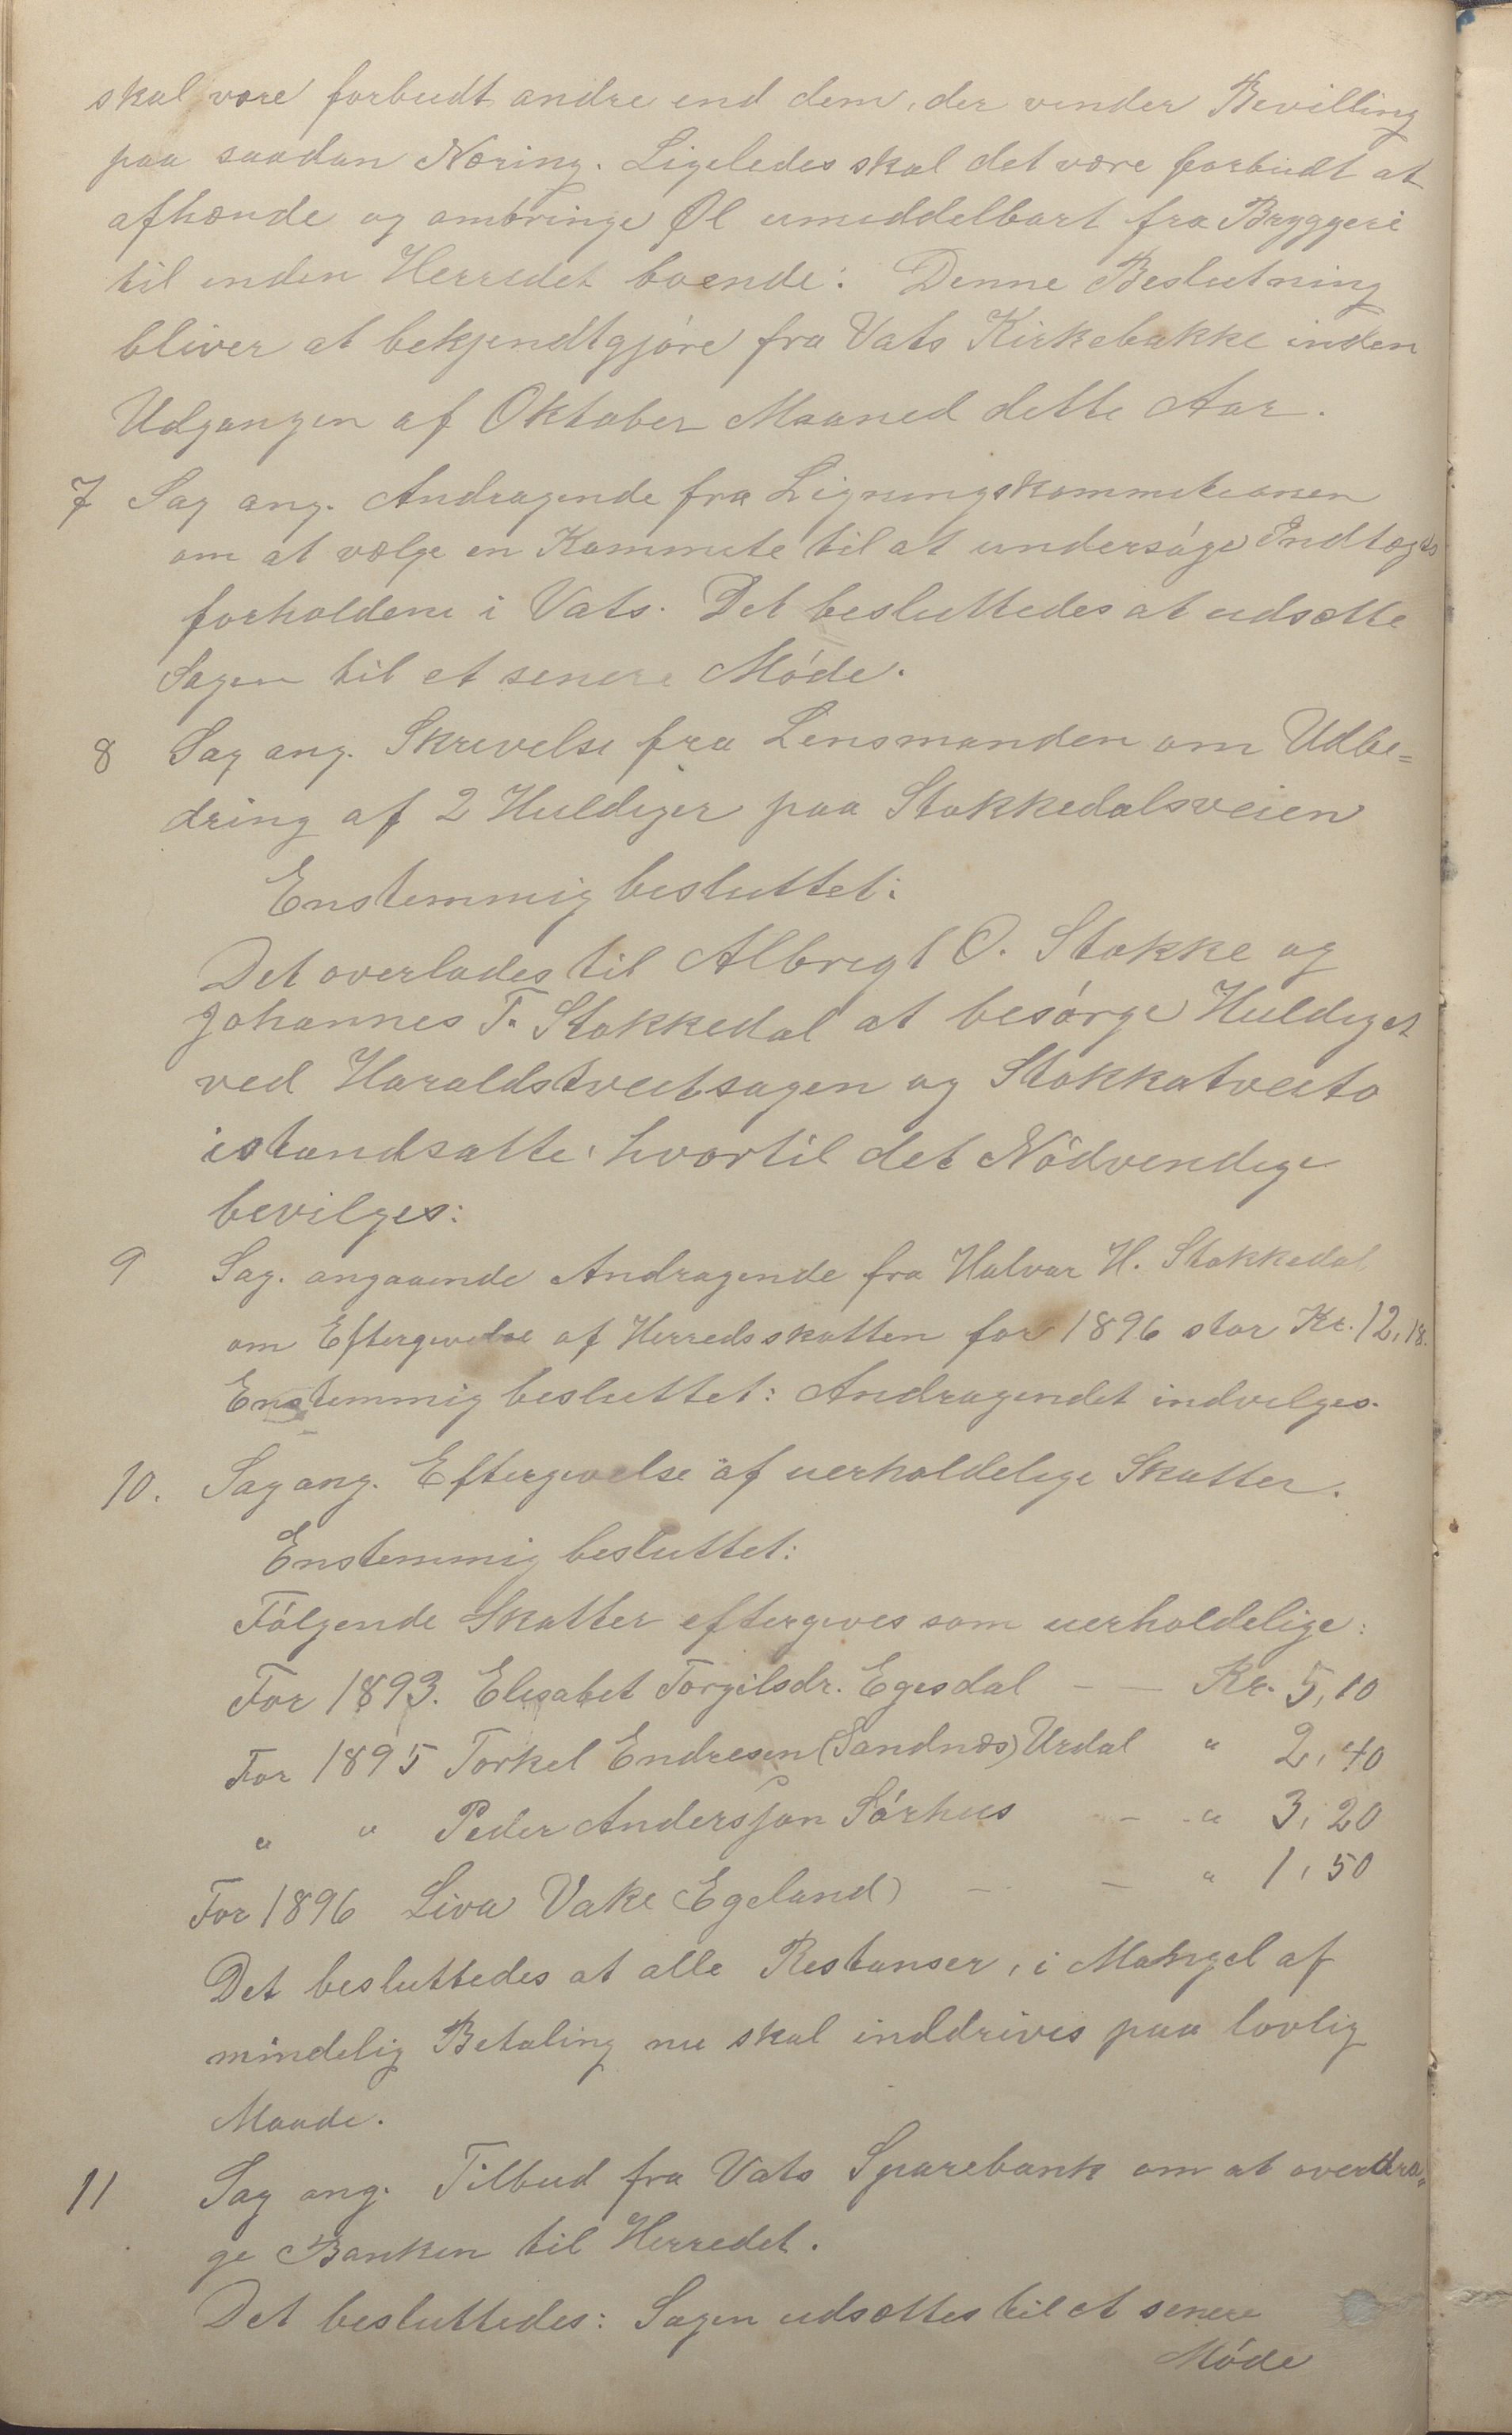 skal være forbudt andre end dem, der vinder Bevilling
paa saadan Næring. Ligeledes skal det være forbudt at
afhænde og ombringe Øl umiddelbart fra Bryggeri
til inden Herredet boende: Denne Beslutning
bliver at bekjendtgjøre fra Vats Kirkebakke inden
Udgangen af Oktober Maaned dette Aar.
7 Sag ang. Andragende fra Ligningskommisionen
om at vælge en Kommite til at undersøge Indtægts
forholdene i Vats. Det besluttedes at udsætte
Sagen til et senere Møde.
8 Sag ang. Skrivelse fra Lensmanden om Udbe=
dring af 2 Huldiger paa Stokkedalsveien
Enstemmig besluttet:
Det overlades til Albregt O. Stokke og
Johannes T. Stokkedal at besørge Huldiget
ved Haraldstveitsagen og Stokkatveito
istandsatte, hvortil det Nødvendige
bevilges:
9 Sag. angaaende Andragende fra Halvor H. Stokkedal
om Eftergivelse af Herredsskatten for 1896 stor Kr. 12,18.
Enstemmig besluttet: Andragendet indvilges.
10. Sag ang. Eftergivelse af uerholdelige Skatter.
Enstemmig besluttet:
Følgende Skatter eftergives som uerholdelige:
For 1893. Elisabet Torgilsdr. Egesdal — — Kr. 5,10
For 1895 Torkel Endresen (Sandnæs) Urdal " 2,40
" " Peder Andersson Sørhus — " 3,20
For 1896 Liva Vake Egeland) — — " 1,50
Det besluttedes at alle Restanser, i Mangel af
mindelig Betaling nu skal inddrives paa lovlig
Maade.
11 Sag ang. Tilbud fra Vats Sparebank om at overdra=
ge Banken til Herredet.
Det besluttedes: Sagen udsættes til et senere
Møde